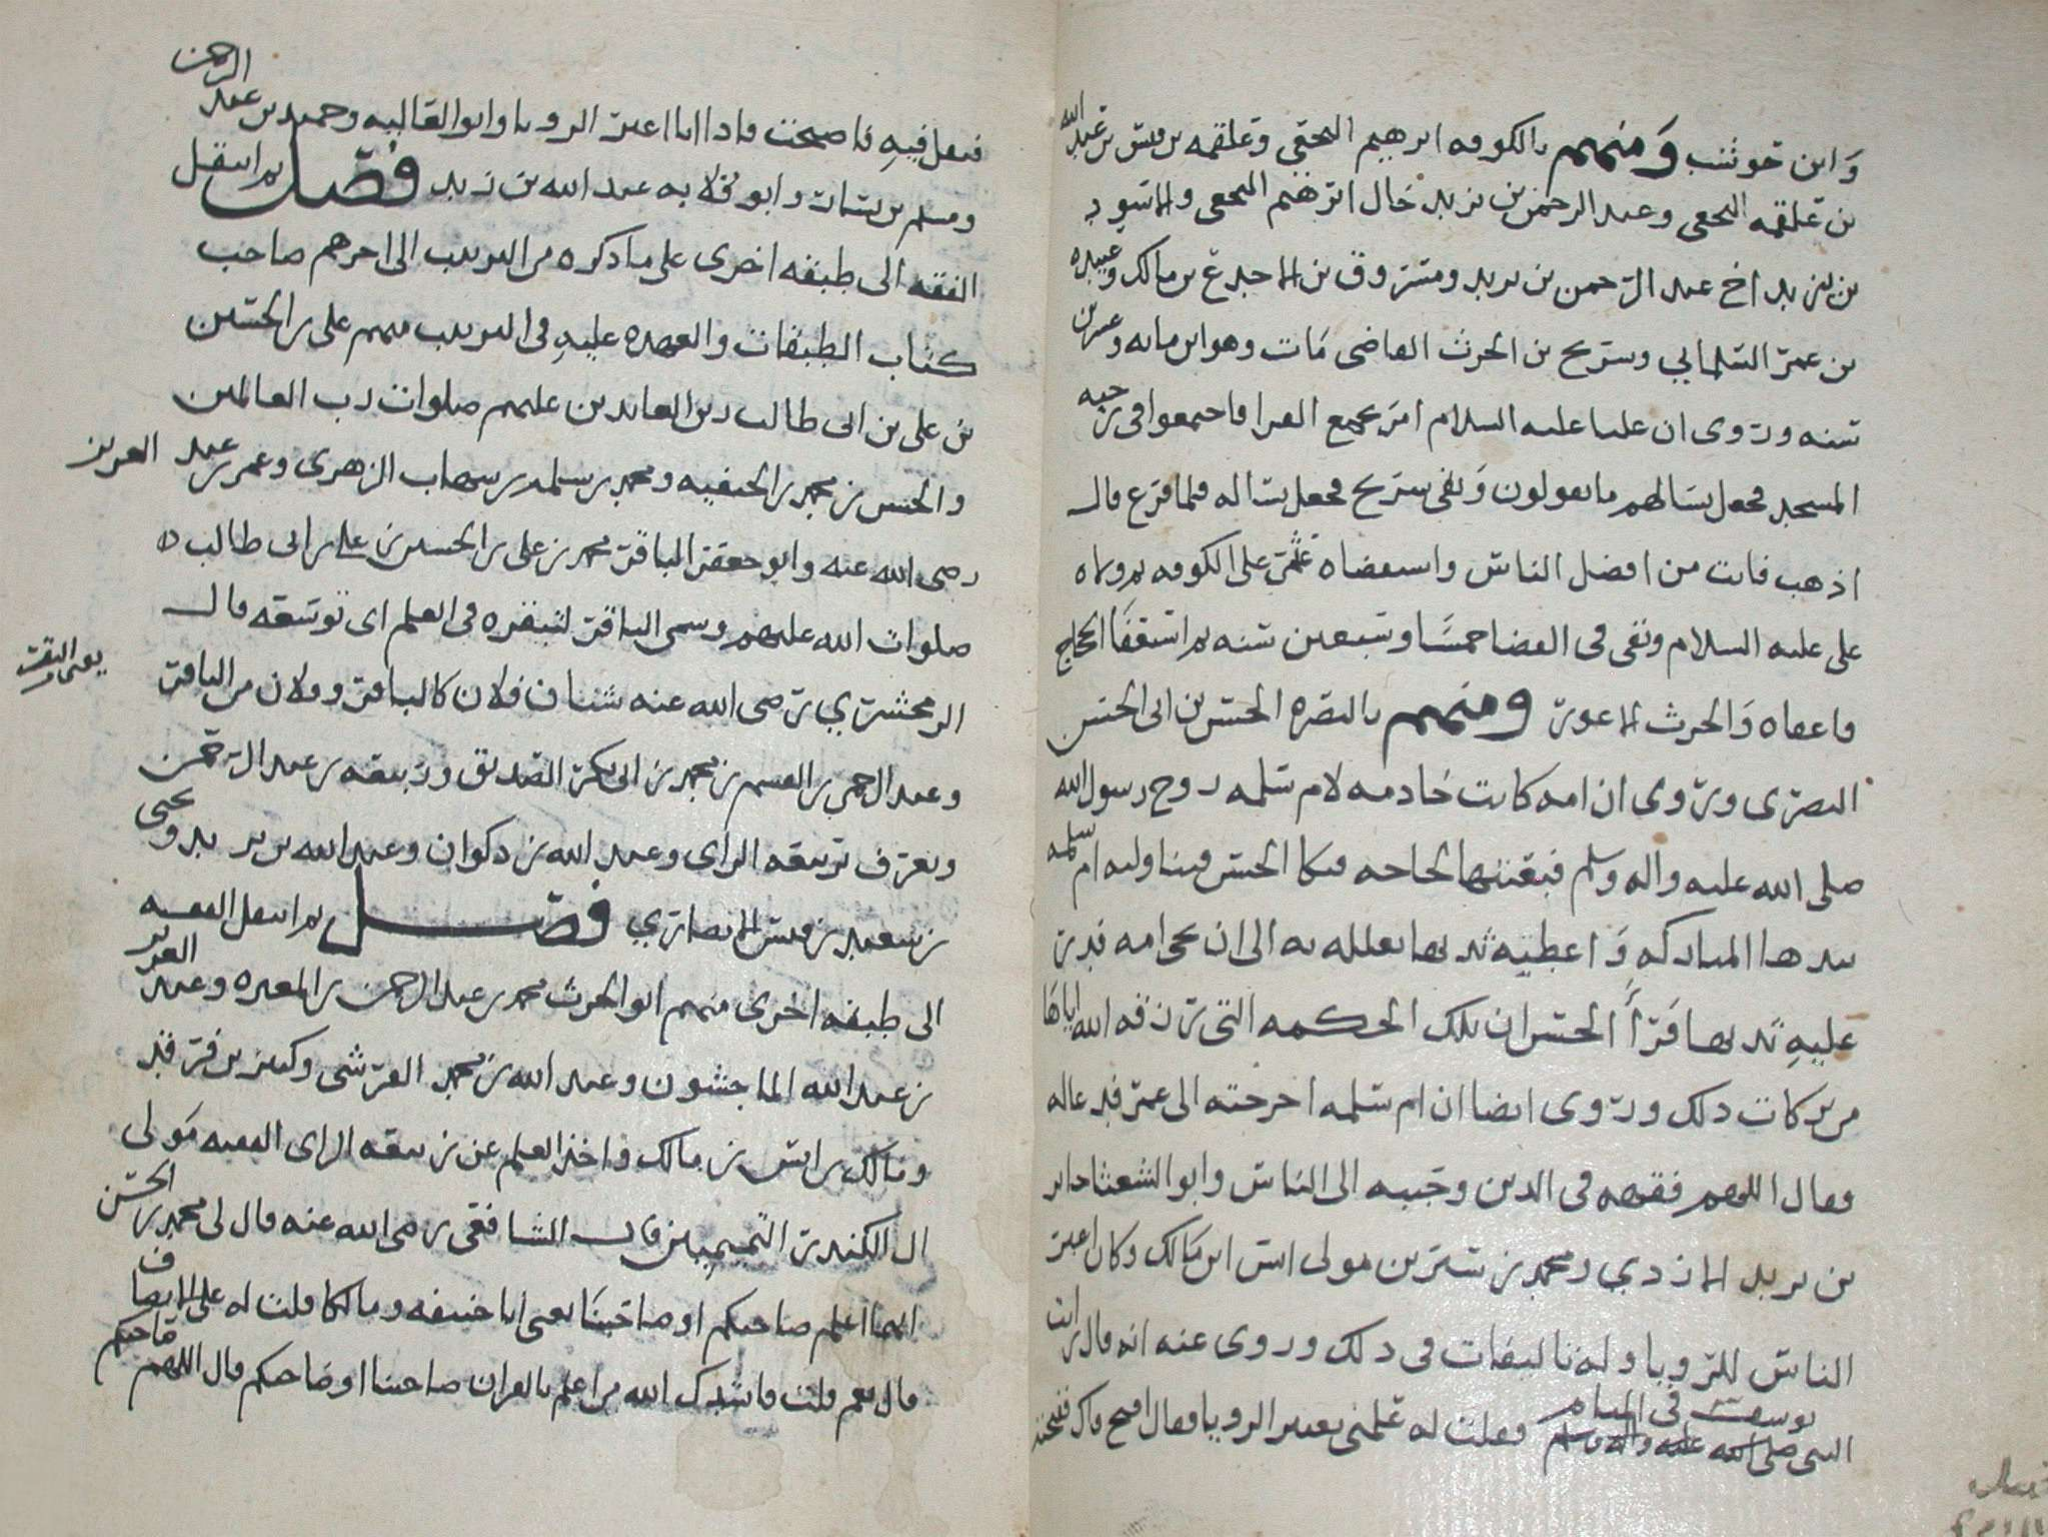 وابن حوشب ومنهم بالكوفه ابرهيم النخعي وعلقمه بن قيس بن عبد الله
بن علقمه النخعي وعبد الرحمن بن يزيد خال ابرهيم النخعي والاسود
بن يزيد اخ عبد الرحمن بن يزيد ومسروق بن الاجدع بن مالك وعبيده
بن عمر السلماني وشريح بن الحرث القاضي مات وهو ابن مايه وعشرين
سنه وروى ان عليا عليه السلام امر بجميع القرا فاجتمعوا في رحبه
المسجد فجعل يسالهم ما يقولون وبقى شريح فجعل يساله فلما فرغ قال
اذهب فانت من افضل الناس واستقضاه عمر على الكوفه ثم ولاه
على عليه السلام وبقى في القضا خمسا وسبعين سنه ثم استعفا الحجاج
فاعفاه والحرث الاعور ومنهم بالبصره الحسن بن ابي الحسن
البصرى ويروى ان امه كانت خادمه لام سلمه زوج رسول الله
صلى الله عليه واله وسلم فبعثتها لحاجه فبكا الحسن فتناوله ام سلمه
بيدها المباركه واعطيه ثديها تعلله به الى ان تجى امه فدر
عليه ثديها الحسن ان تلك الحكمه التي رزقه الله اياها
من بركات ذلك وروى ايضا ان ام سلمه اخرجته الى عمر فدعاله
وقال اللهم فقهه في الدين وحببه الى الناس وابو الشعثا جابر
بن يزيد الازدي ومحمد بن سيرين مولى انس ابن مالك وكان اعبر
الناس للرويا وله تاليفات في ذلك وروى عنه انه قال رايت
يوسف في المنام
النبي صلى الله عليه واله وسلم فقلت له علمني تعبير الرويا فقال افتح فاك ففتحته
فتفل فيه فاصبحت فاذا انا اعبر الرويا وابو العاليه وحميد بن عبد الرحمن
ومسلم بن يسار وابو قلابه عبد الله بن زيد فصل ثم انتقل
الفقه الى طبقه اخرى على ما ذكره من الترتيب الى اخرهم صاحب
كتاب الطبقات والعهده عليه في الترتيب منهم على بن الحسين
بن على بن ابى طالب زين العابدين عليهم صلوات رب العالمين
والحسن بن محمد بن الحنفيه ومحمد بن مسلم بن شهاب الزهرى وعمر بن عبد العزيز
رضى الله عنه وابو جعفر الباقر محمد بن على بن الحسين بن على بن ابى طالب
صلوات الله عليهم وسمى الباقر لتبقره في العلم اى توسعه قال
الزمخشري رضى الله عنه شتان فلان كالباقر وفلان من الباقر
يعنى البقر
وعبد الرحمن بن القسم بن محمد بن ابى بكر الصديق وربيعه بن عبد الرحمن
ويعرف بربيعه الراى وعبد الله بن ذكوان وعبد الله بن يزيد ويحيى
بن سعيد بن قيس الانصاري فصل ثم انتقل الفقه
الى طبقه اخرى منهم ابو الحرث محمد بن عبد الرحمن بن المغيره وعبد العزيز
بن عبد الله الماجشون وعبد الله بن محمد القرشى وكثير بن فرقد
ومالك بن انس بن مالك واخذ العلم عن ربيعه الراى الفقيه مولى
ال المنكدر التيميين قال الشافعى رضى الله عنه قال لى محمد بن الحسن
ايهما اعلم صاحبكم او صاحبنا يعنى ابا حنيفه ومالكا قلت له على الانصاف
قال نعم قلت فانشدك الله من اعلم بالقران صاحبنا او صاحبكم قال اللهم صاحبكم